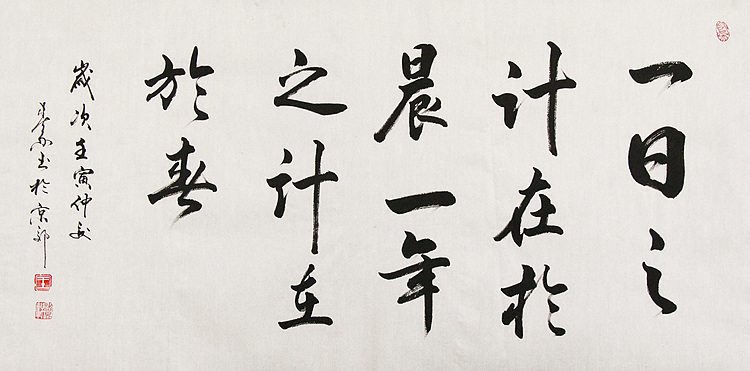 一日之
計在於
晨一年
之計在
於春
歲次壬寅仲秋
書於京郊